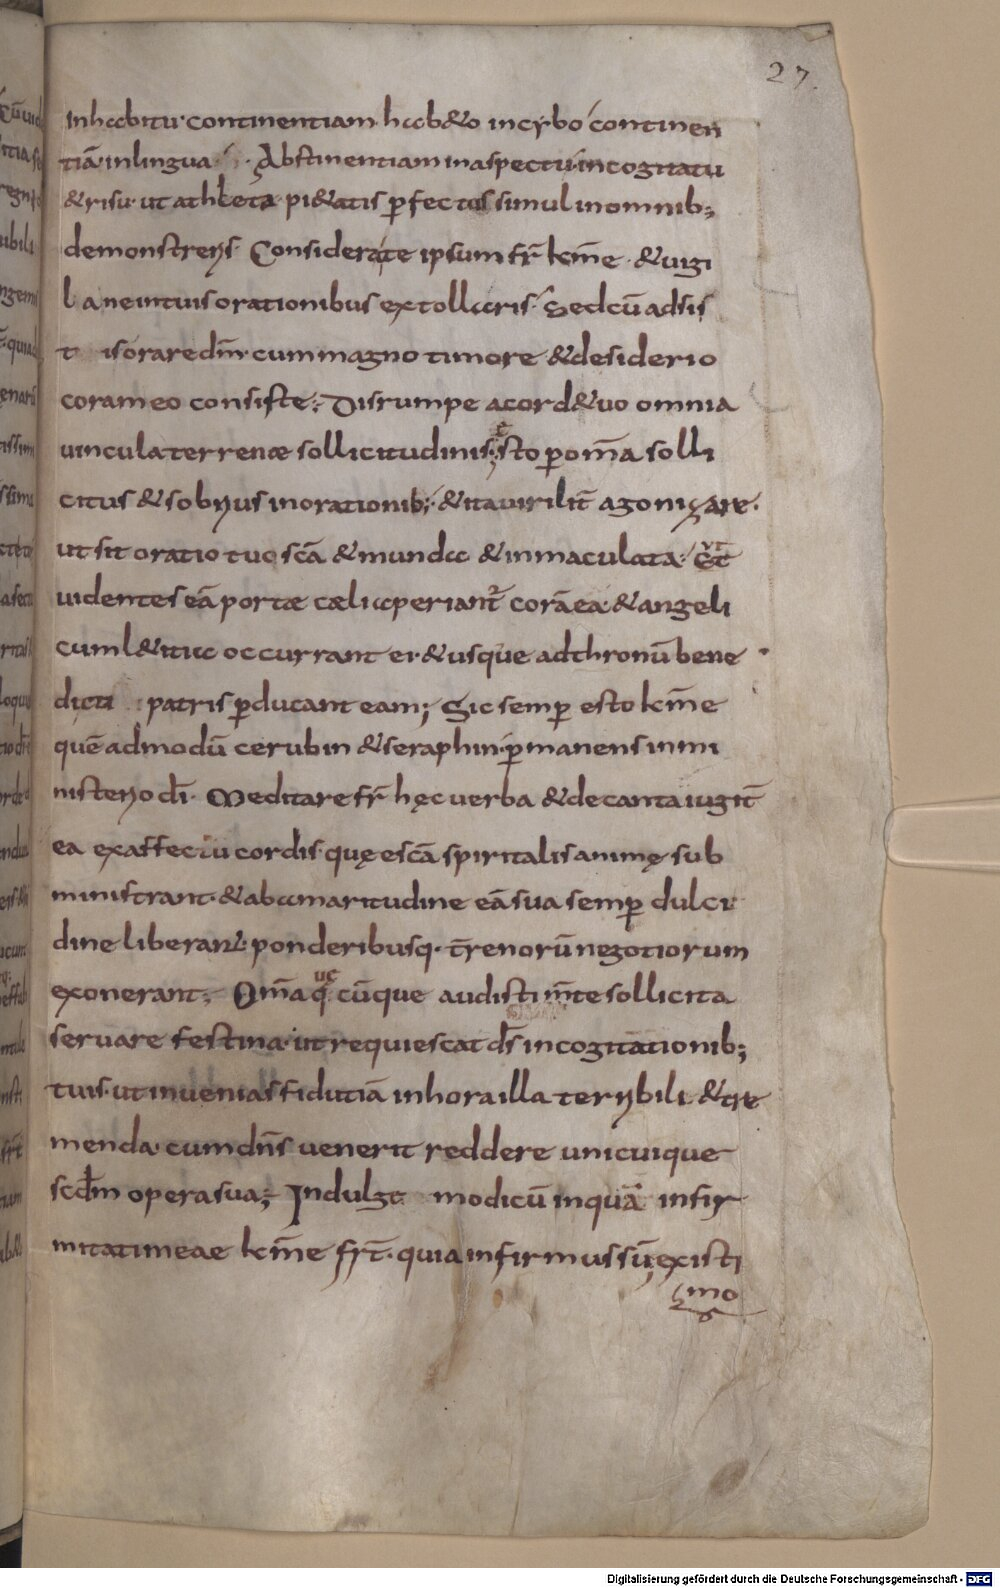 27.
Inhabitu continentiam hab&o incybo continen
tiā inlingua. Abstinentiam inaspectu incogitatu
&risu ut athleta pi&atis ꝑfectus simul inomnib;
demonstreris. Considerate ipsum fr̄ km̄e &uigi
la neintuis orationibus extollaris. Sedcū adsis
t is orare dm̄ cum magno timore &desiderio
coram eo consiste; Disrumpe acord&uo omnia
uincula terrenae sollicitudinis; &sto ꝑ om̄a solli
citus &sobrius inorationib; &ita uirilit̄ agonizare.
ut sit oratio tua sc̄a &munda &inmaculata.
uidentes eā portae caeli aperiant̄ corā ea &angeli
cum l&itia occurrant ei &usque adthronū bene
dicti patris ꝑducant eam; Sic semꝑ esto km̄e
quēadmodū cerubin &seraphin ꝑmanens inmi
nisterio dī. Meditare fr̄ hęc uerba &decanta iugit̄
ea ex affectu cordis quę escā spiritalis animę sub
ministrant &abamaritudine eā sua semꝑ dulci
dine liberant ponderibusq. t̄renorū negotiorum
exonerant; Om̄a quecūque audisti m̄te sollicita
seruare festina ut requiescat ds̄ incogitationib;
tuis ut inuenias fidutiā inhora illa terribili &tre
menda cum dn̄s uenerit reddere unicuique
scd̄m opera sua; Indulge modicū inquā infir
mitati meae km̄e fr̄t. quia infirmus sū existi
mo
Digitalisierung gefördert durch die Deutsche Forschungsgemeinschaft - DFG